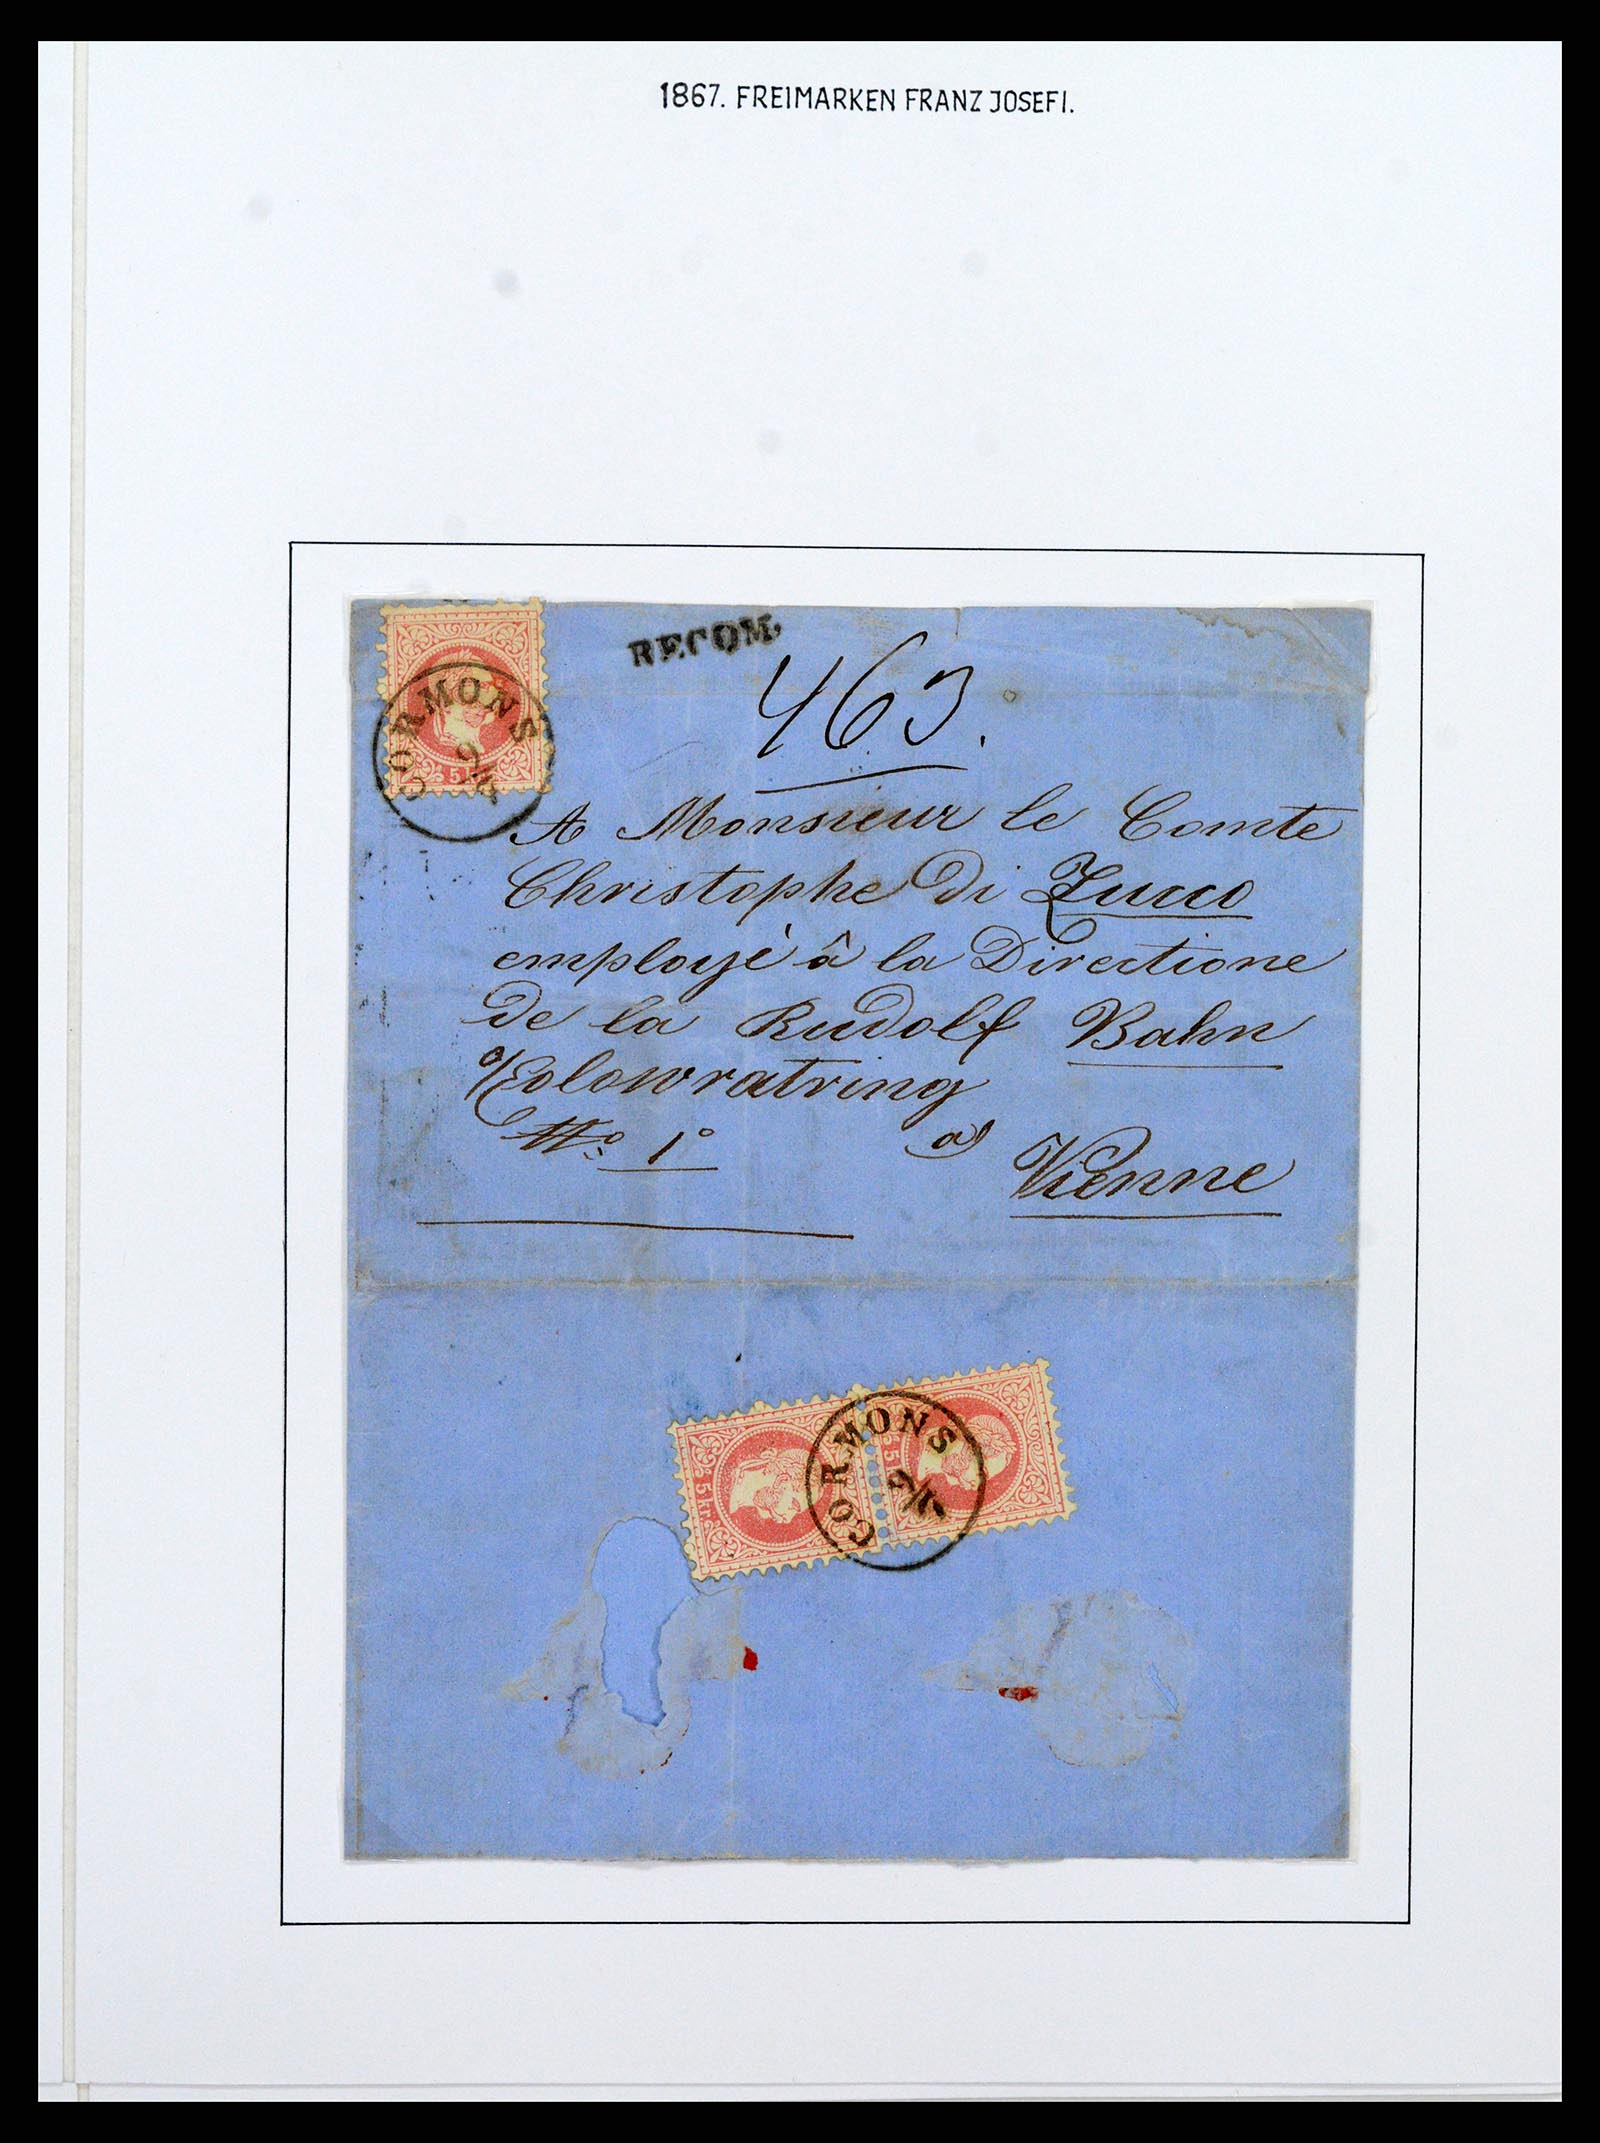 1867. FREIMARKEN FRANZ JOSEF I.
RECOM.
463.
CORMONS
A Monsieur le Comte
Christophe Di Zucco
employé â la Directione
De la Rudolf Bahn
Kolowratring
No. 1°
a
Vienne
CORMONS
5 kr
5